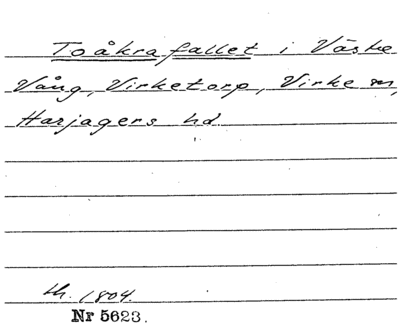 Toåkrafallet i Västre
Vång, Virketorp, Virke sn,
Harjagers hd
th. 1804.
Nr 5623.